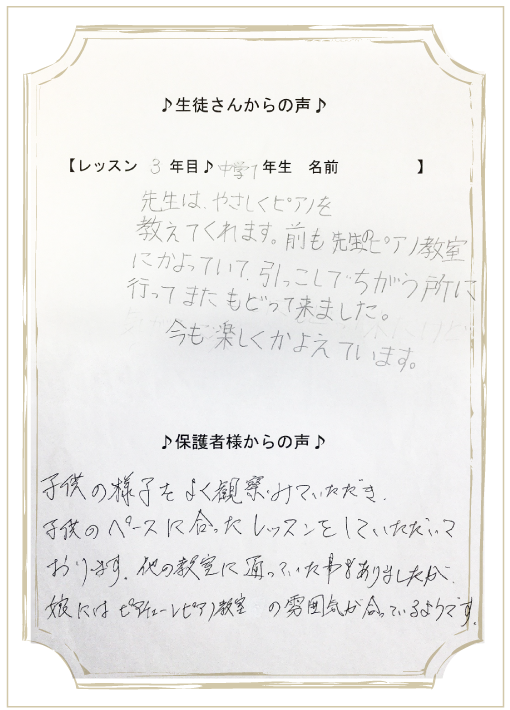 ♪生徒さんからの声♪
【レッスン 3 年目♪中学1年生 名前 】
先生は、やさしくピアノを
教えてくれます。前も先生のピアノ教室
にかよっていて、引っこしでちがう所に
行ってまたもどって来ました。
今も楽しくかよえています。
♪保護者様からの声♪
子供の様子をよく観察みていただき、
子供のペースに合ったレッスンをしていただいて
おります。他の教室に通っていた事もありましたが、
娘にはピアチェーレピアノ教室 の雰囲気が合っているようです。